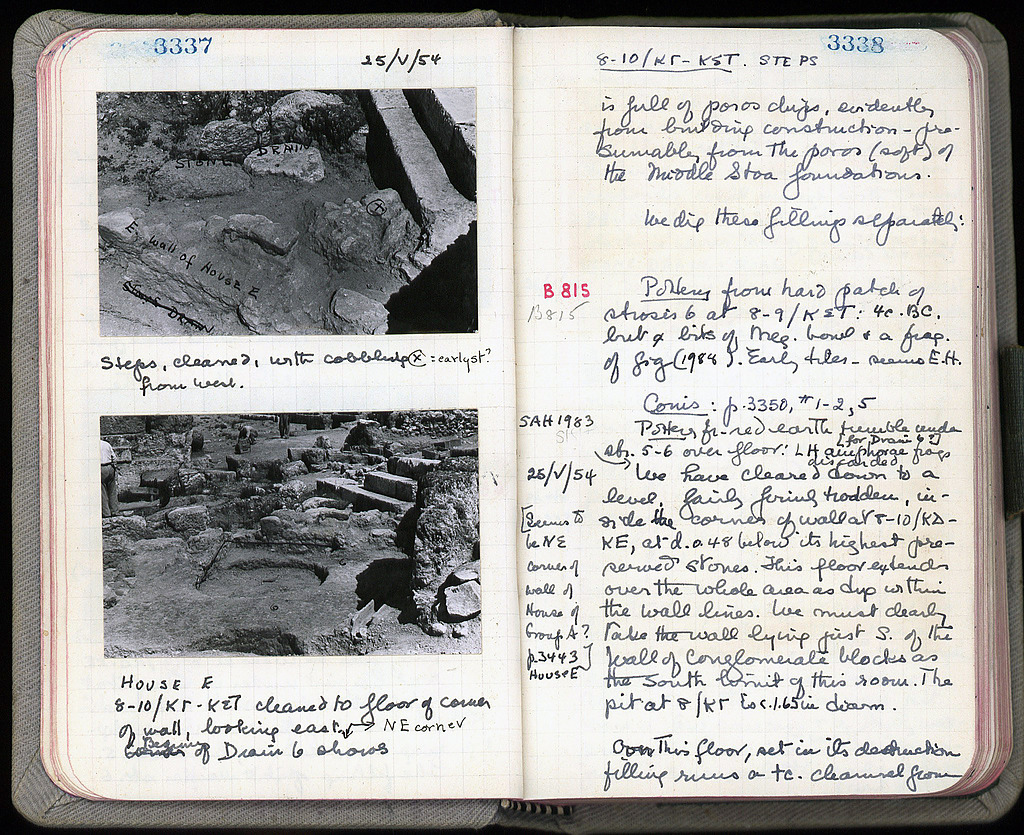 3337
25/V/54
STONE DRAIN
E. wall of HOUSE E
DRAIN
Steps, cleaned, with cobbling ⊗ = earlyst?
from west.
HOUSE E
8-10/ΚΓ-ΚΣΤ cleaned to floor of corner
of wall, looking east → NE corner
Beginning of Drain 6 shows
3338
8-10/ΚΓ-ΚΣΤ. STEPS
is full of poros chips, evidently
from building construction - pre-
sumably from the poros (soft) of
the Middle Stoa foundations.
We dig these fillings separately:
B 815
B815
Pottery from hard patch of
strosis 6 at 8-9/ΚΣΤ: 4c. BC.
but bits of Meg. bowl & a frag.
of (1984). Early tiles - seems E.H.
Coins: p. 3350, #1-2, 5
SAH 1983
Pottery fr. red earth tumble under
[for Drain 6?]
str. 5-6 over floor: LH amphorae frags
discarded
25/V/54
We have cleared down to a
level, fairly firmly trodden, in-
side the corner of wall at 8-10/ΚΔ-
ΚΕ, at d. 0.48 below its highest pre-
served stones. This floor extends
over the whole area as dug within
the wall lines. We must clearly
take the wall lying just S. of the
wall of conglomerate blocks as
the South limit of this room. The
pit at 8/ΚΓ is c. 1.65 in diam.
[Seems to
be NE
corner of
wall of
House of
Group A?
p. 3443]
House E
Over this floor, set in its destruction
filling runs a tc. channel from